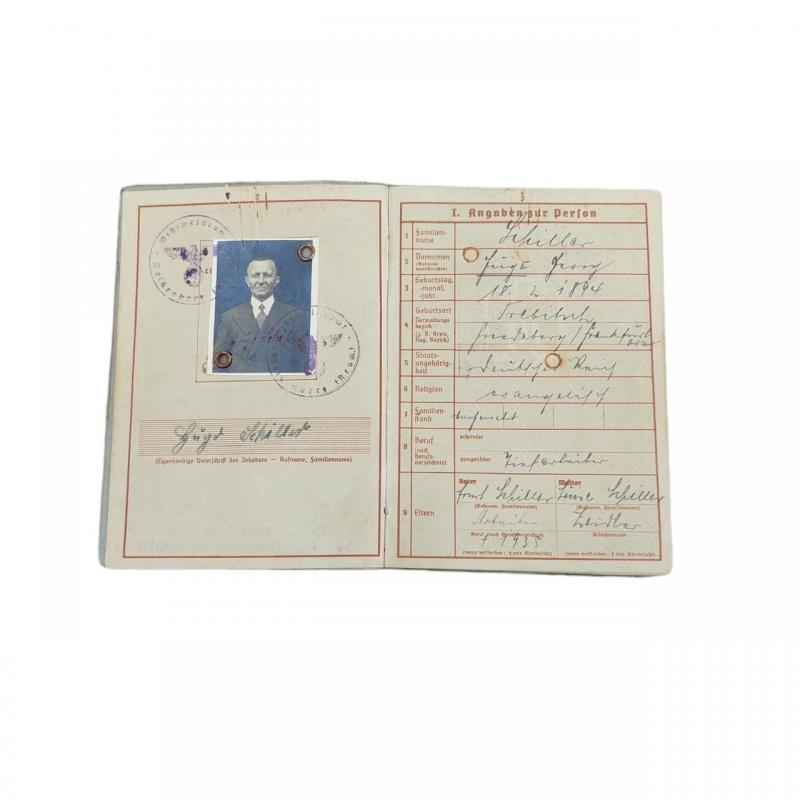 2
Wehrmeldeamt
Woldenberg
Hugo Schiller
(Eigenhändige Unterschrift des Inhabers — Rufname, Familienname)
3
I. Angaben zur Person
1 Familienname Schiller
2 Vornamen (Rufname unterstreichen) Hugo Georg
3 Geburtstag, -monat, -jahr 18. 2. 1894
4 Geburtsort Verwaltungsbezirk (z. B. Kreis, Reg. Bezirk) Trebitsch
Friedeberg / Frankfurt Oder
5 Staatsangehörigkeit Deutsches Reich
6 Religion evangelisch
7 Familienstand verheiratet
8 Beruf (nach Berufsverzeichnis) erlernter
ausgeübter Tiefarbeiter
9 Eltern
Vater Mutter
Ernst Schiller Schiller
(Rufname, Familienname) (Rufname, Familienname)
Arbeiter Zeidler
Beruf (nach Berufsverzeichnis) Mädchenname
† 1935
(wenn verstorben: † und Sterbejahr) (wenn verstorben: † und Sterbejahr)